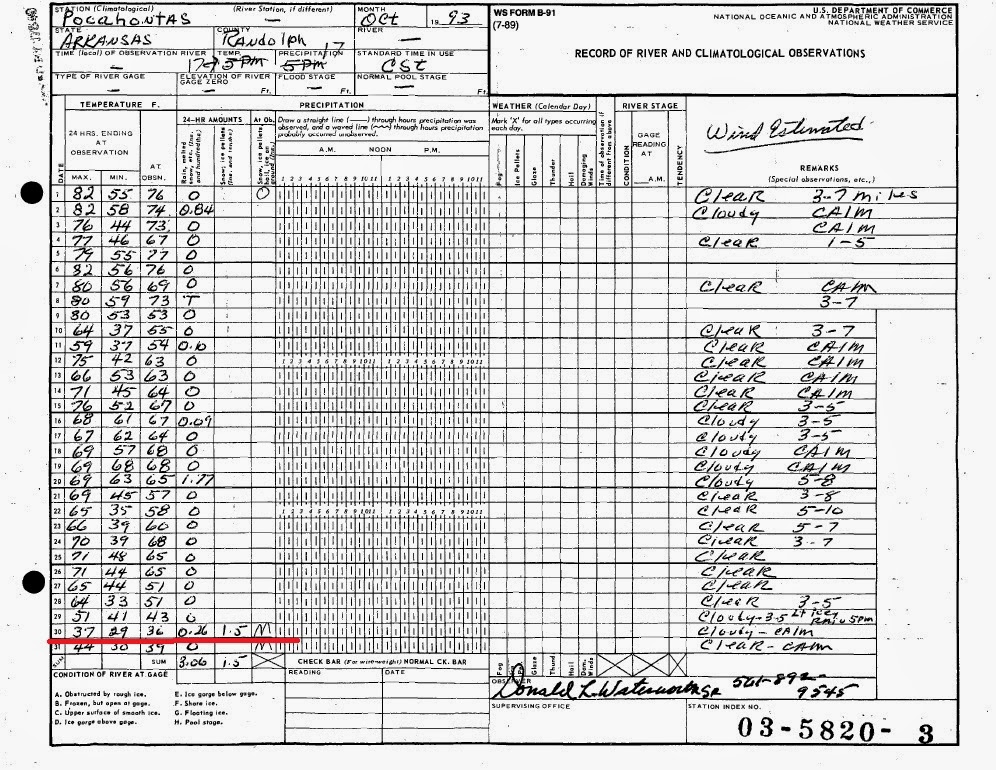 STATION (Climatological) (River Station, if different) MONTH WS FORM B-91 U.S. DEPARTMENT OF COMMERCE
POCAHONTAS — Oct 1993 (7-89) NATIONAL OCEANIC AND ATMOSPHERIC ADMINISTRATION
NATIONAL WEATHER SERVICE
STATE COUNTY RIVER
ARKANSAS Randolph —
RECORD OF RIVER AND CLIMATOLOGICAL OBSERVATIONS
TIME (local) OF OBSERVATION RIVER TEMP. PRECIPITATION STANDARD TIME IN USE
— 17 5PM 17 5PM CST
TYPE OF RIVER GAGE ELEVATION OF RIVER GAGE ZERO FLOOD STAGE NORMAL POOL STAGE
— — Ft. — Ft. — Ft.
TEMPERATURE F. PRECIPITATION WEATHER (Calendar Day) RIVER STAGE
24 HRS. ENDING AT OBSERVATION AT OBSN. 24-HR AMOUNTS At Ob.
Draw a straight line (——) through hours precipitation was observed, and a waved line (~~~) through hours precipitation probably occurred unobserved.
Mark 'X' for all types occurring each day.
Wind Estimated
DATE MAX. MIN. Rain, melted snow, etc. (Ins. and hundredths) Snow, ice pellets (Ins. and tenths) Snow, ice pellets, hail, ice on ground (Ins.)
A.M. NOON P.M.
1 2 3 4 5 6 7 8 9 10 11 1 2 3 4 5 6 7 8 9 10 11
Fog Ice Pellets Glaze Thunder Hail Damaging Winds Time of observation if different from above CONDITION GAGE READING AT A.M. TENDENCY
REMARKS
(Special observations, etc.,)
1 82 55 76 0 0 Clear 3-7 miles
2 82 58 74 0.84 Cloudy CAlm
3 76 44 73 0 CAlm
4 77 46 67 0 Clear 1-5
5 79 55 77 0
6 82 56 76 0
7 80 56 69 0 Clear CAlm
8 80 59 73 T 3-7
9 80 53 53 0
10 64 37 55 0 Clear 3-7
11 59 37 54 0.10 Clear CAlm
12 75 42 63 0 Clear CAlm
13 66 53 63 0 Clear CAlm
14 71 45 64 0 Clear CAlm
15 76 52 67 0 Clear 3-5
16 68 61 67 0.09 Cloudy 3-5
17 67 62 64 0 Cloudy 3-5
18 69 57 68 0 Cloudy CAlm
19 69 68 68 0 Cloudy CAlm
20 69 63 65 1.77 Cloudy 5-8
21 69 45 57 0 Clear 3-8
22 65 35 58 0 Clear 5-10
23 66 39 60 0 Clear 5-7
24 70 39 68 0 Clear 3-7
25 71 48 65 0 Clear
26 71 44 65 0 Clear
27 65 44 51 0 Clear
28 64 33 51 0 Clear 3-5
29 51 41 43 0 Cloudy-3-5 Lt icey Rain 5pm
30 37 29 36 0.26 1.5 M Cloudy - CAlm
31 44 30 39 0 M Clear - CAlm
SUM SUM 3.06 1.5 CHECK BAR (For wire-weight) NORMAL CK. BAR Fog Glaze Thunder Hail Dam. Winds
CONDITION OF RIVER AT GAGE READING DATE OBSERVER
Donald L. Waterworth SR 501-892-9545
A. Obstructed by rough ice. E. Ice gorge below gage.
B. Frozen, but open at gage. F. Shore ice.
C. Upper surface of smooth ice. G. Floating ice.
D. Ice gorge above gage. H. Pool stage.
SUPERVISING OFFICE STATION INDEX NO.
03-5820- 3